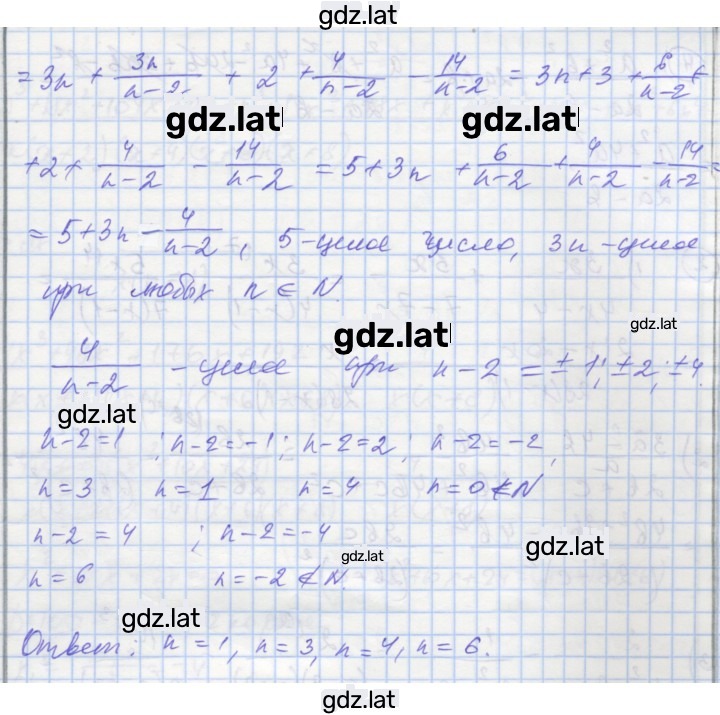 gdz.lat
= 3n + 3n/(n-2) + 2 + 4/(n-2) - 14/(n-2) = 3n + 3 + 6/(n-2) +
gdz.lat gdz.lat
+ 2 + 4/(n-2) - 14/(n-2) = 5 + 3n + 6/(n-2) + 4/(n-2) - 14/(n-2) =
= 5 + 3n - 4/(n-2), 5 - целое число, 3n - целое
при любых n ∈ N.
gdz.lat gdz.lat
4/(n-2) - целое при n - 2 = ± 1; ± 2; ± 4.
gdz.lat
n-2=1 ; n-2=-1; n-2=2; n-2=-2,
n=3 n=1 n=4 n=0 ∉ N
n-2=4 ; n-2=-4
gdz.lat gdz.lat
n=6 n=-2 ∉ N.
gdz.lat
Ответ: n=1, n=3, n=4, n=6.
gdz.lat